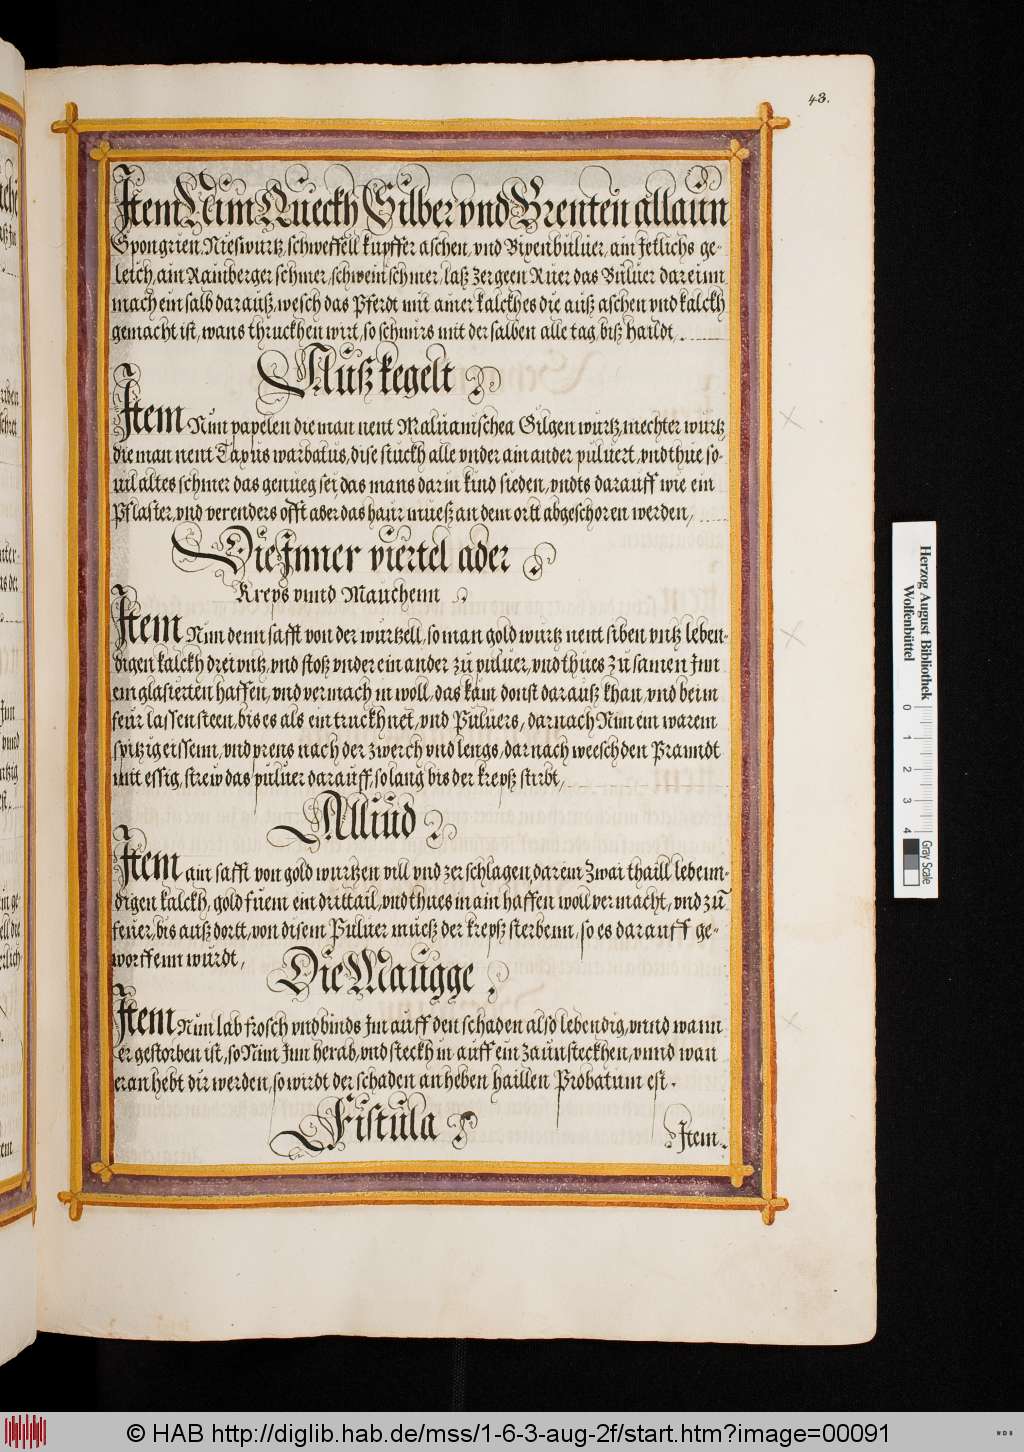 43.
Item Nim Queckh Silber vnd Brenten allaun
Spongrien, Nieswurtz, schweffell kupffer aschen, vnd Bixenbuluer, ain Jetlichs ge-
leich, ain Rainberger schmer, schwein schmer, laß zergeen Ruer das Buluer dareinn
mach ein salb darauß, wesch das Pferdt mit ainer kalckhes die auß aschen vnd kalckh
gemacht ist, wans thruckhen wirt, so schmirs mit der salben alle tag, biß haildt,
Außkegelt
Item Nim papelen die man nent Maluanischea Gilgen wurtz mechter wurtz
die man nent Taxus warbatus, dise stuckh alle vnder ain ander puluert, vnd thue so-
uil altes schmer das genueg sei, das mans darin kind sieden, vndts darauff wie ein
Pflaster, vnd verenders offt aber das haar mueß an dem ortt abgeschoren werden,
Die Inner viertel ader
Kreps vnnd Mauchenn
Item Nim denn safft von der wurtzell, so man gold wurtz nent siben vntz leben-
digen kalckh drei vntz, vnd stoß vnder ein ander zu puluer, vnd thues zu samen Inn
ein glasierten haffen, vnd vermach in woll, das kain donst darauß khan, vnd beim
feur lassen steen, bis es als ein truckhnet, vnd Puluers, darnach Nim ein warem
spitzig eissenn, vnd prens nach der zwerch vnd lengs, darnach weesch den Branndt
mit essig, strew das puluer darauff, so lang bis der krepß stirbt,
Alliud
Item ain safft von gold wurtzen vill vnd zerschlagen, darein zwai thaill lebenn-
digen kalckh, gold fuem ein drittail, vnd thues in ain haffen woll vermacht, vnd zu
feuer, bis auß dortt, von disem Puluer mueß der krepß sterbenn, so es darauff ge-
worffenn wurdt,
Die Maugge
Item Nim lab frosch vnd binds Im auff den schaden also lebendig, vnnd wann
er gestorben ist, so Nim Inn herab, vnd steckh in auff ein zaunsteckhen, vnnd wan
er anhebt dir werden, so wirdt der schaden anheben haillen Probatum est.
Fistula
Item
Herzog August Bibliothek
Wolfenbüttel
0 1 2 3 4
Gray Scale
© HAB http://diglib.hab.de/mss/1-6-3-aug-2f/start.htm?image=00091